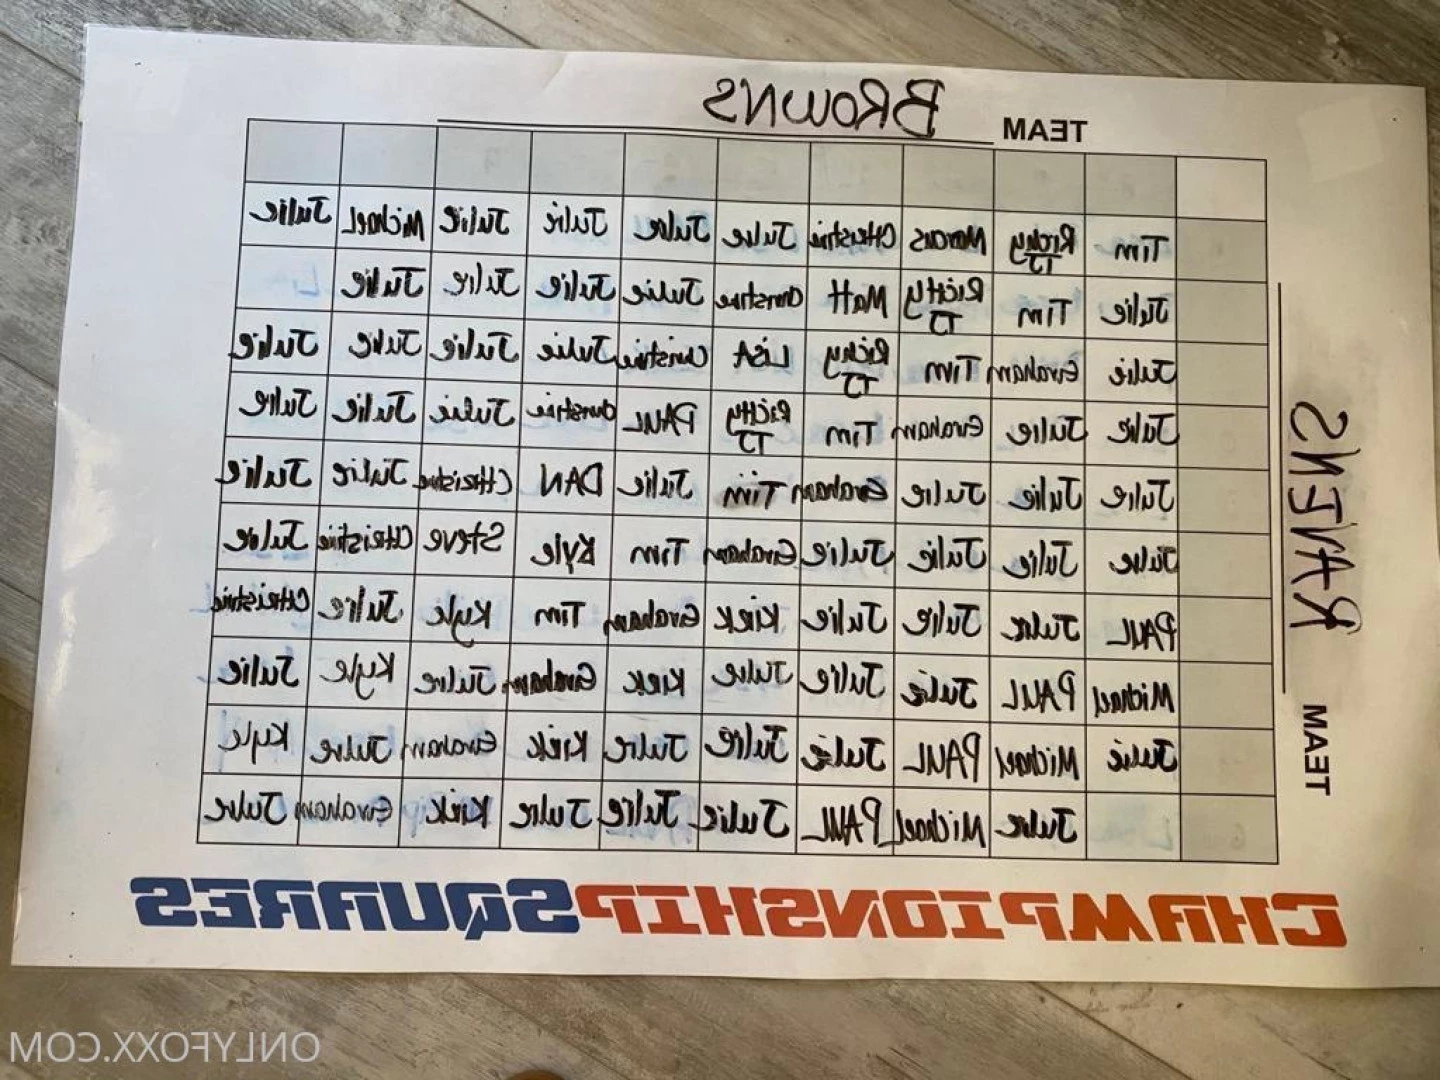 TEAM BROWNS
Tim Ricky TJ Marcus CHRistine Julie Julie Julie Julie Michael Julie
Julie Tim RicKy TJ Matt Christine Julie Julie Julie Julie
Julie Graham Tim Ricky TJ LiSA Christine Julie Julie Julie Julie
Julie Julie Graham Tim RicKy TJ PAUL Christine Julie Julie Julie
Julie Julie Julie Graham Tim Julie DAN CHRistine Julie Julie
Julie Julie Julie Julie Graham Tim Kyle Steve CHRistine Julie
PAUL Julie Julie Julie KiRK Graham Tim Kyle Julie CHRistine
Michael PAUL Julie Julie Julie KiRK Graham Julie Kyle Julie
Julie Michael PAUL Julie Julie Julie KiRK Graham Julie Kyle
Julie Michael PAUL Julie Julie Julie KiRK Graham Julie
TEAM RAVENS
CHAMPIONSHIP SQUARES
ONLYFOXX.COM